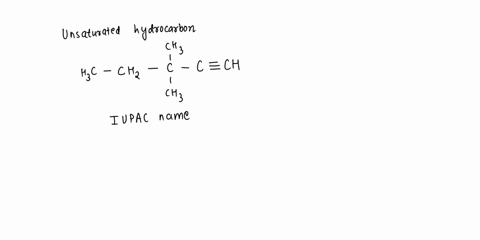 Unsaturated hydrocarbon
CH3
H3C - CH2 - C - C ≡ CH
CH3
IUPAC name